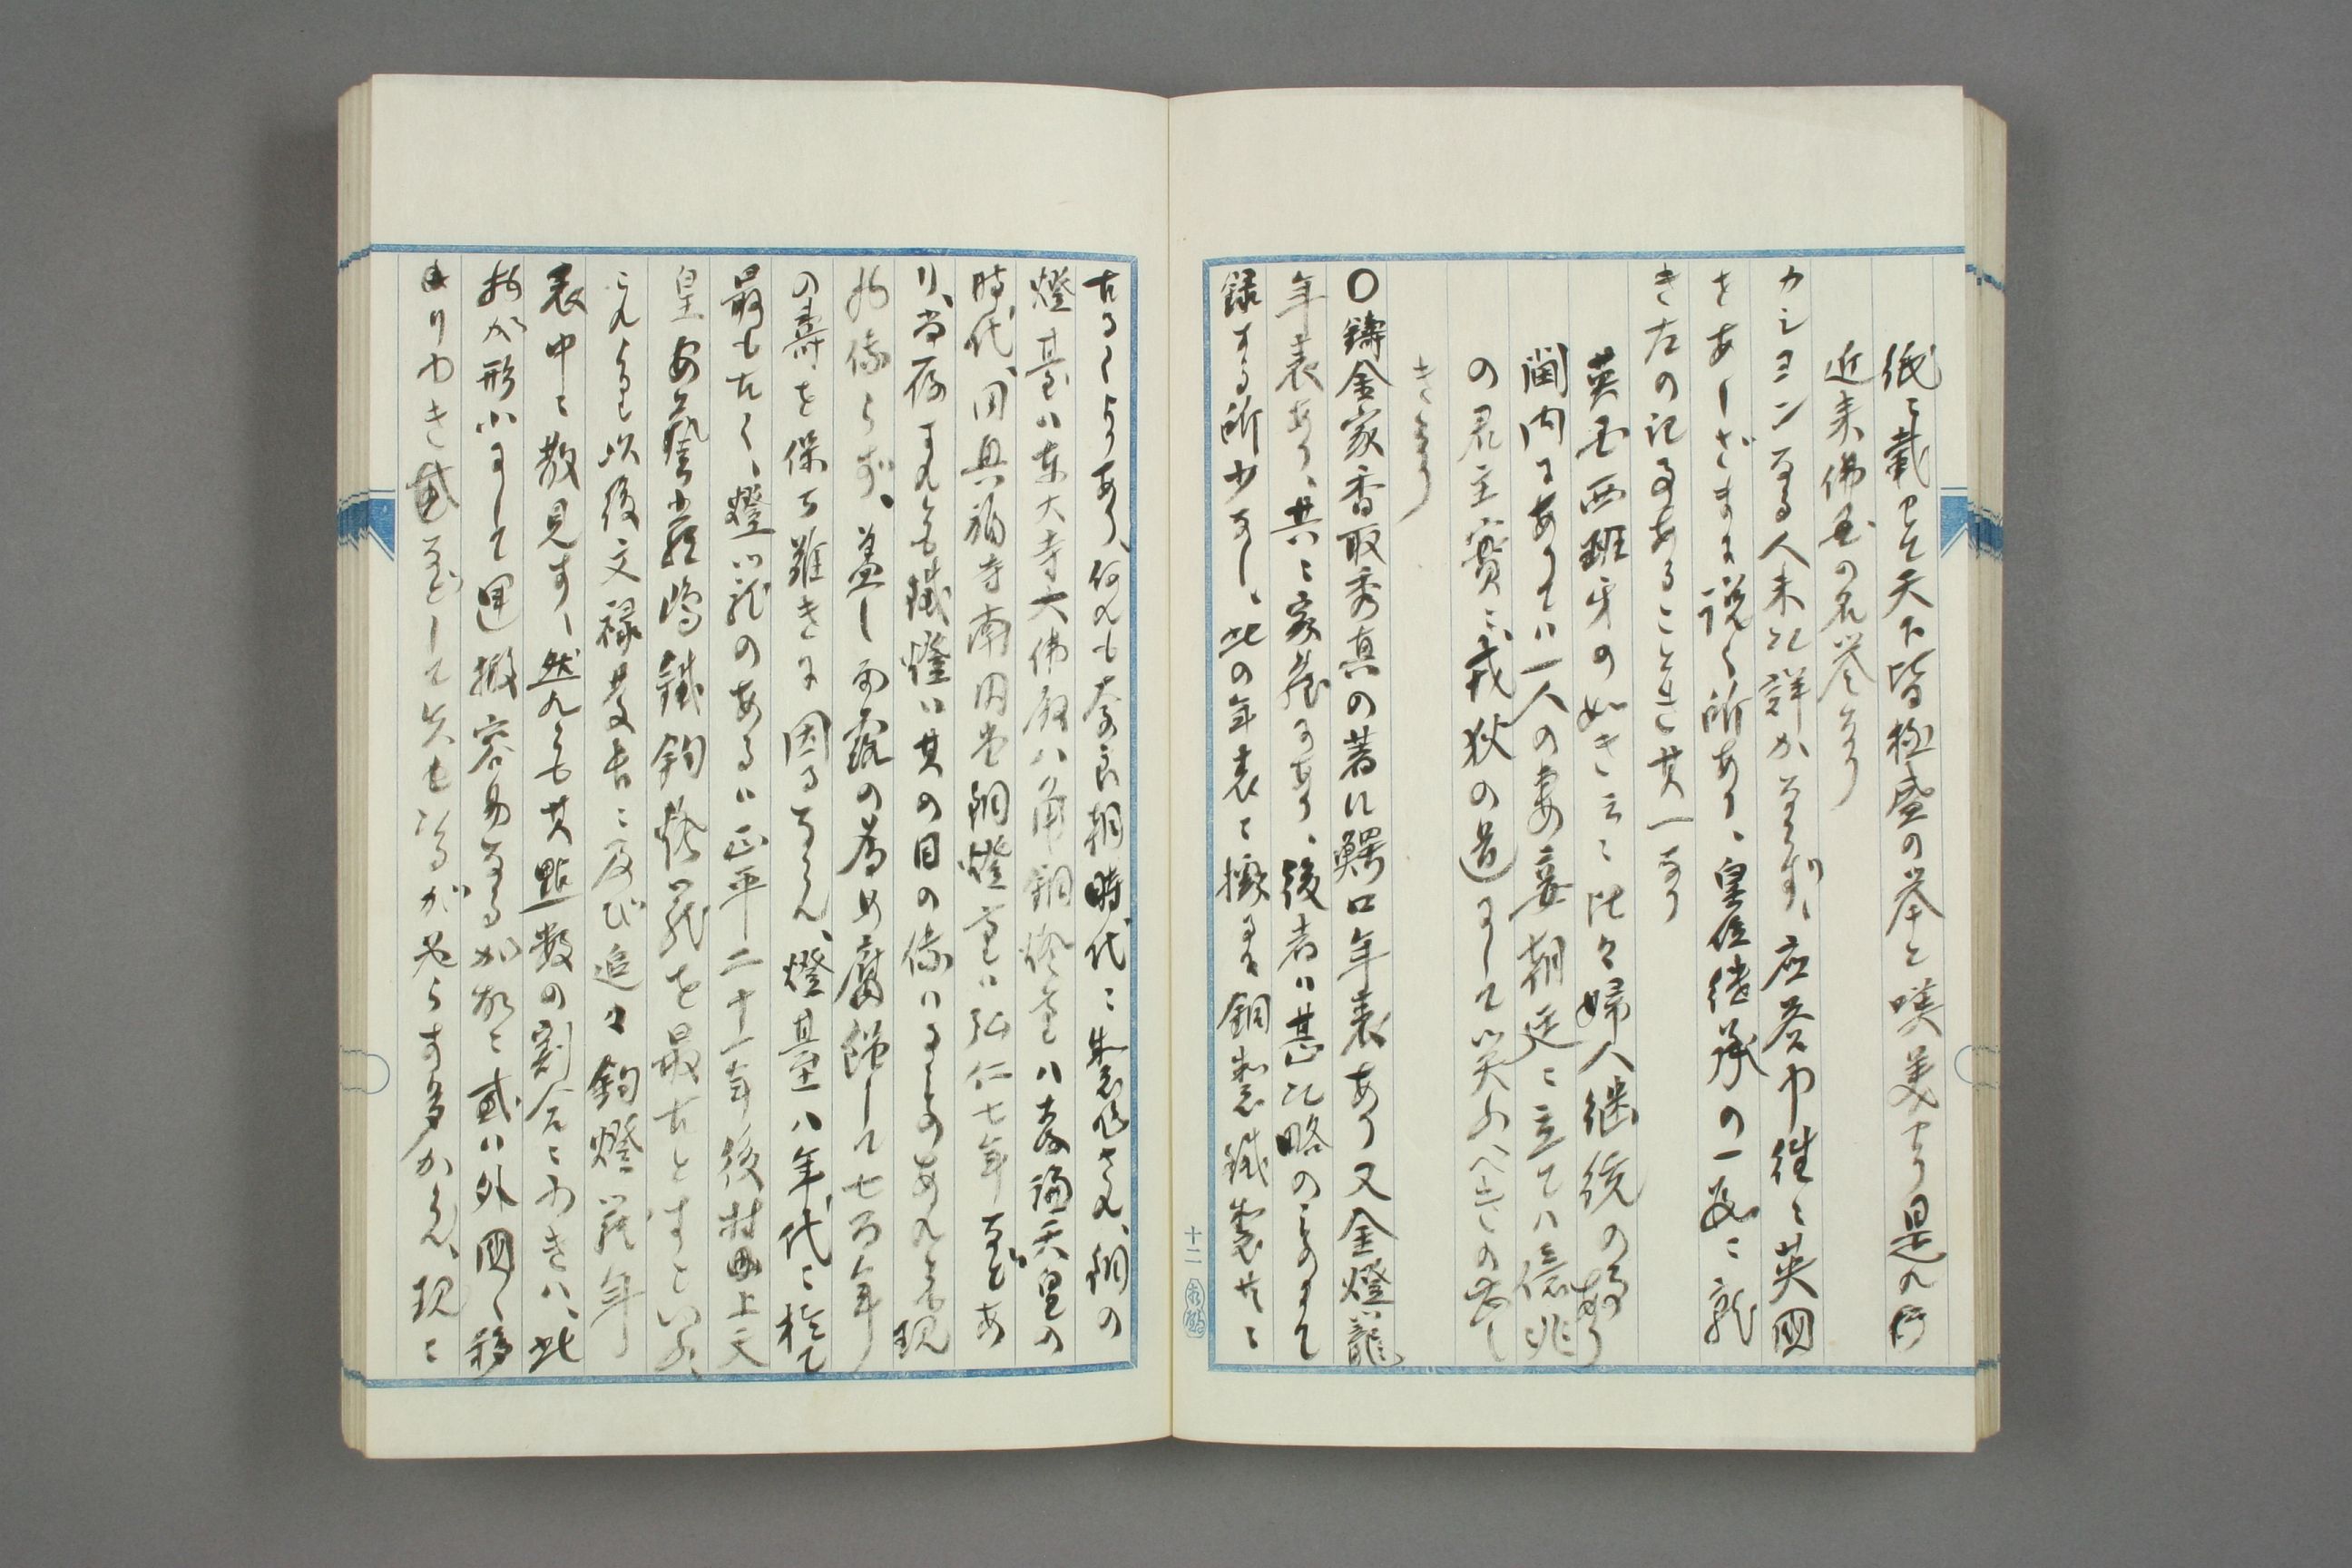 紙に載せて天下皆極盛の挙と嘆美せり是れ
近来佛国の名誉なり
カシヨンなる人未だ詳かならず、応答中往々英国
をあしざまに説く所あり、皇位継承の一段に就
き左の記事あることとき其一なり
英国西班牙の如き云々此々婦人継統の国あり
閨内にありては一人の妻妾朝廷に立ては億兆
の君主實に戎狄の道にして笑ふべきの甚し
きなり
〇鑄金家香取秀真の著に鰐口年表あり又金燈籠
年表あり、共に家蔵にあり、後者は甚だ略のものにて
録する所少なし、此の年表に據れば銅製鐵製共に
古るくよりあり、何れも奈良朝時代に製作され、銅の
燈臺は東大寺大佛殿八角銅燈臺は孝謙天皇の
時代、同興福寺南円堂銅燈臺は弘仁七年などあ
り、尚存すれども鐵燈は其の目の像はるものあれども現
物傳らず、蓋し雨露の為め腐蝕して七百年
の壽を保ち難きに因るならん、燈臺は年代に於て
最も古く、燈籠のあるは正平二十一年後村上天
皇安藝厳島鐵釣燈籠を最古とすといふ、
これより以後文禄慶長に及び追々釣燈籠年
表中に散見す、然れども其點数の割合に少きは、此
物が形小にして運搬容易なるが故に或は外国へ移
り行き或などして失せたるが少からず多からん、現に
十二